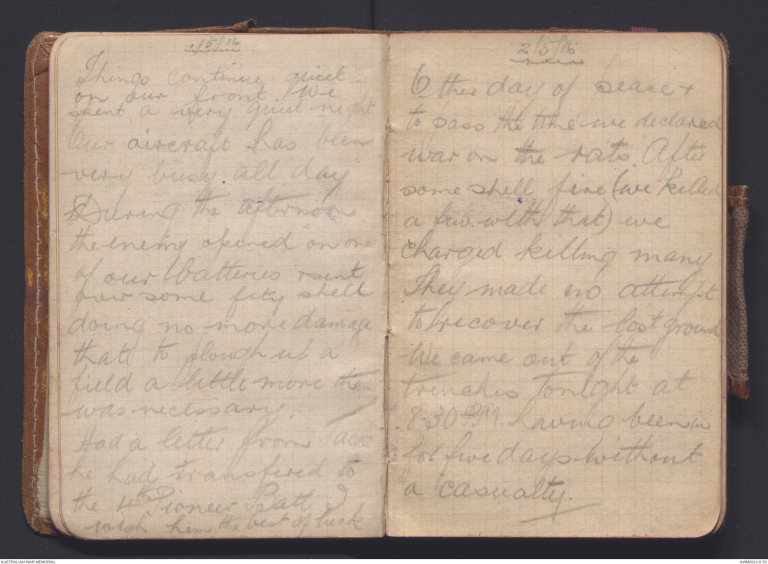 2/5/16
Things continue quiet
on our front. We
spent a very quiet night
Our aircraft has been
very busy all day
During the afternoon
the enemy opened on one
of our batteries & sent
over some fity shell
doing no more damage
that to plough up a
field a little more then
was necessary.
Had a letter from
he had transfered to
the 4th Pioneer Batt. I
wish him the best of luck
2/5/16
other day of peace &
to pass the time we declared
war on the rats. After
some shell fire (we killed
a few with that) we
charged killing many
They made no attempt
to recover the lost ground
We came out of the
trenches tonight at
8.30 P.M. having been in
for five days without
a casualty.
AUSTRALIAN WAR MEMORIAL